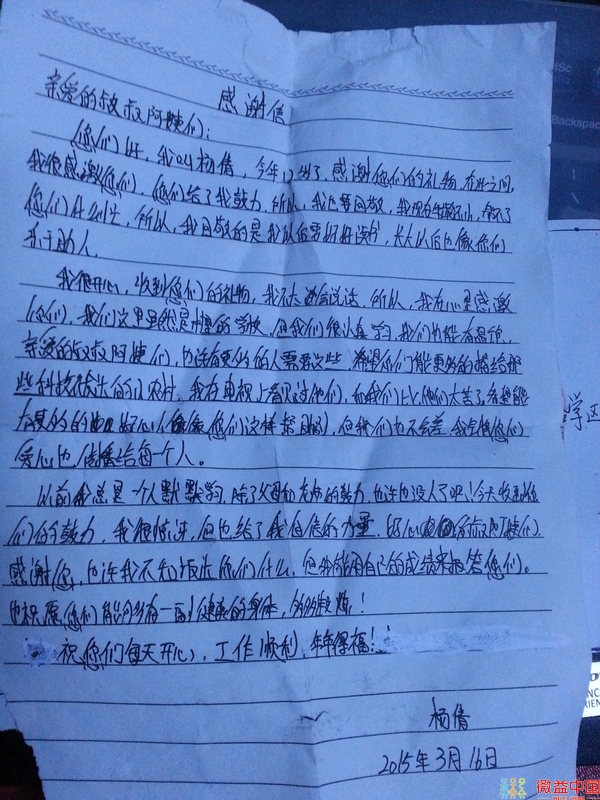 感谢信
亲爱的叔叔阿姨们:
您们好,我叫杨倩,今年12岁了,感谢您们的礼物,在此之间,
我很感激您们,您们给了我鼓力,所以,我也要回敬,我现在年龄不小,帮不了
您们什么忙,所以,我回敬的是我以后要好好读书,长大以后也像你们
乐于助人。
我很开心,收到您们的礼物,我不太会说话,所以,我在心里感激
你们,我们这里虽然是山里的学校,但我们很认真学习,我们也能有出息,
亲爱的叔叔阿姨们,也许有更多的人需要这些,希望你们能更多的捐给那
些科技不发达的小农村,我在电视上看见过他们,和我们比他们太苦了,希望能
有更多的好心人像您们这样帮助,但我们也不会差,我会将您们
爱心也传播给每一个人。
以前我总是一个人默默学习,除了父母和老师的鼓力,也许也没人了吧!今天收到您
们的鼓力,我很惊讶,但也给了我自信的力量,好心的叔叔阿姨们,
感谢您,也许我不知报答您们什么,但我能用自己的成绩来报答您们。
也祝愿您们能够有一副健康的身体,
祝您们每天开心,工作顺利,年年得福!
杨倩
2015年3月16日
微益中国
学区
Backspace